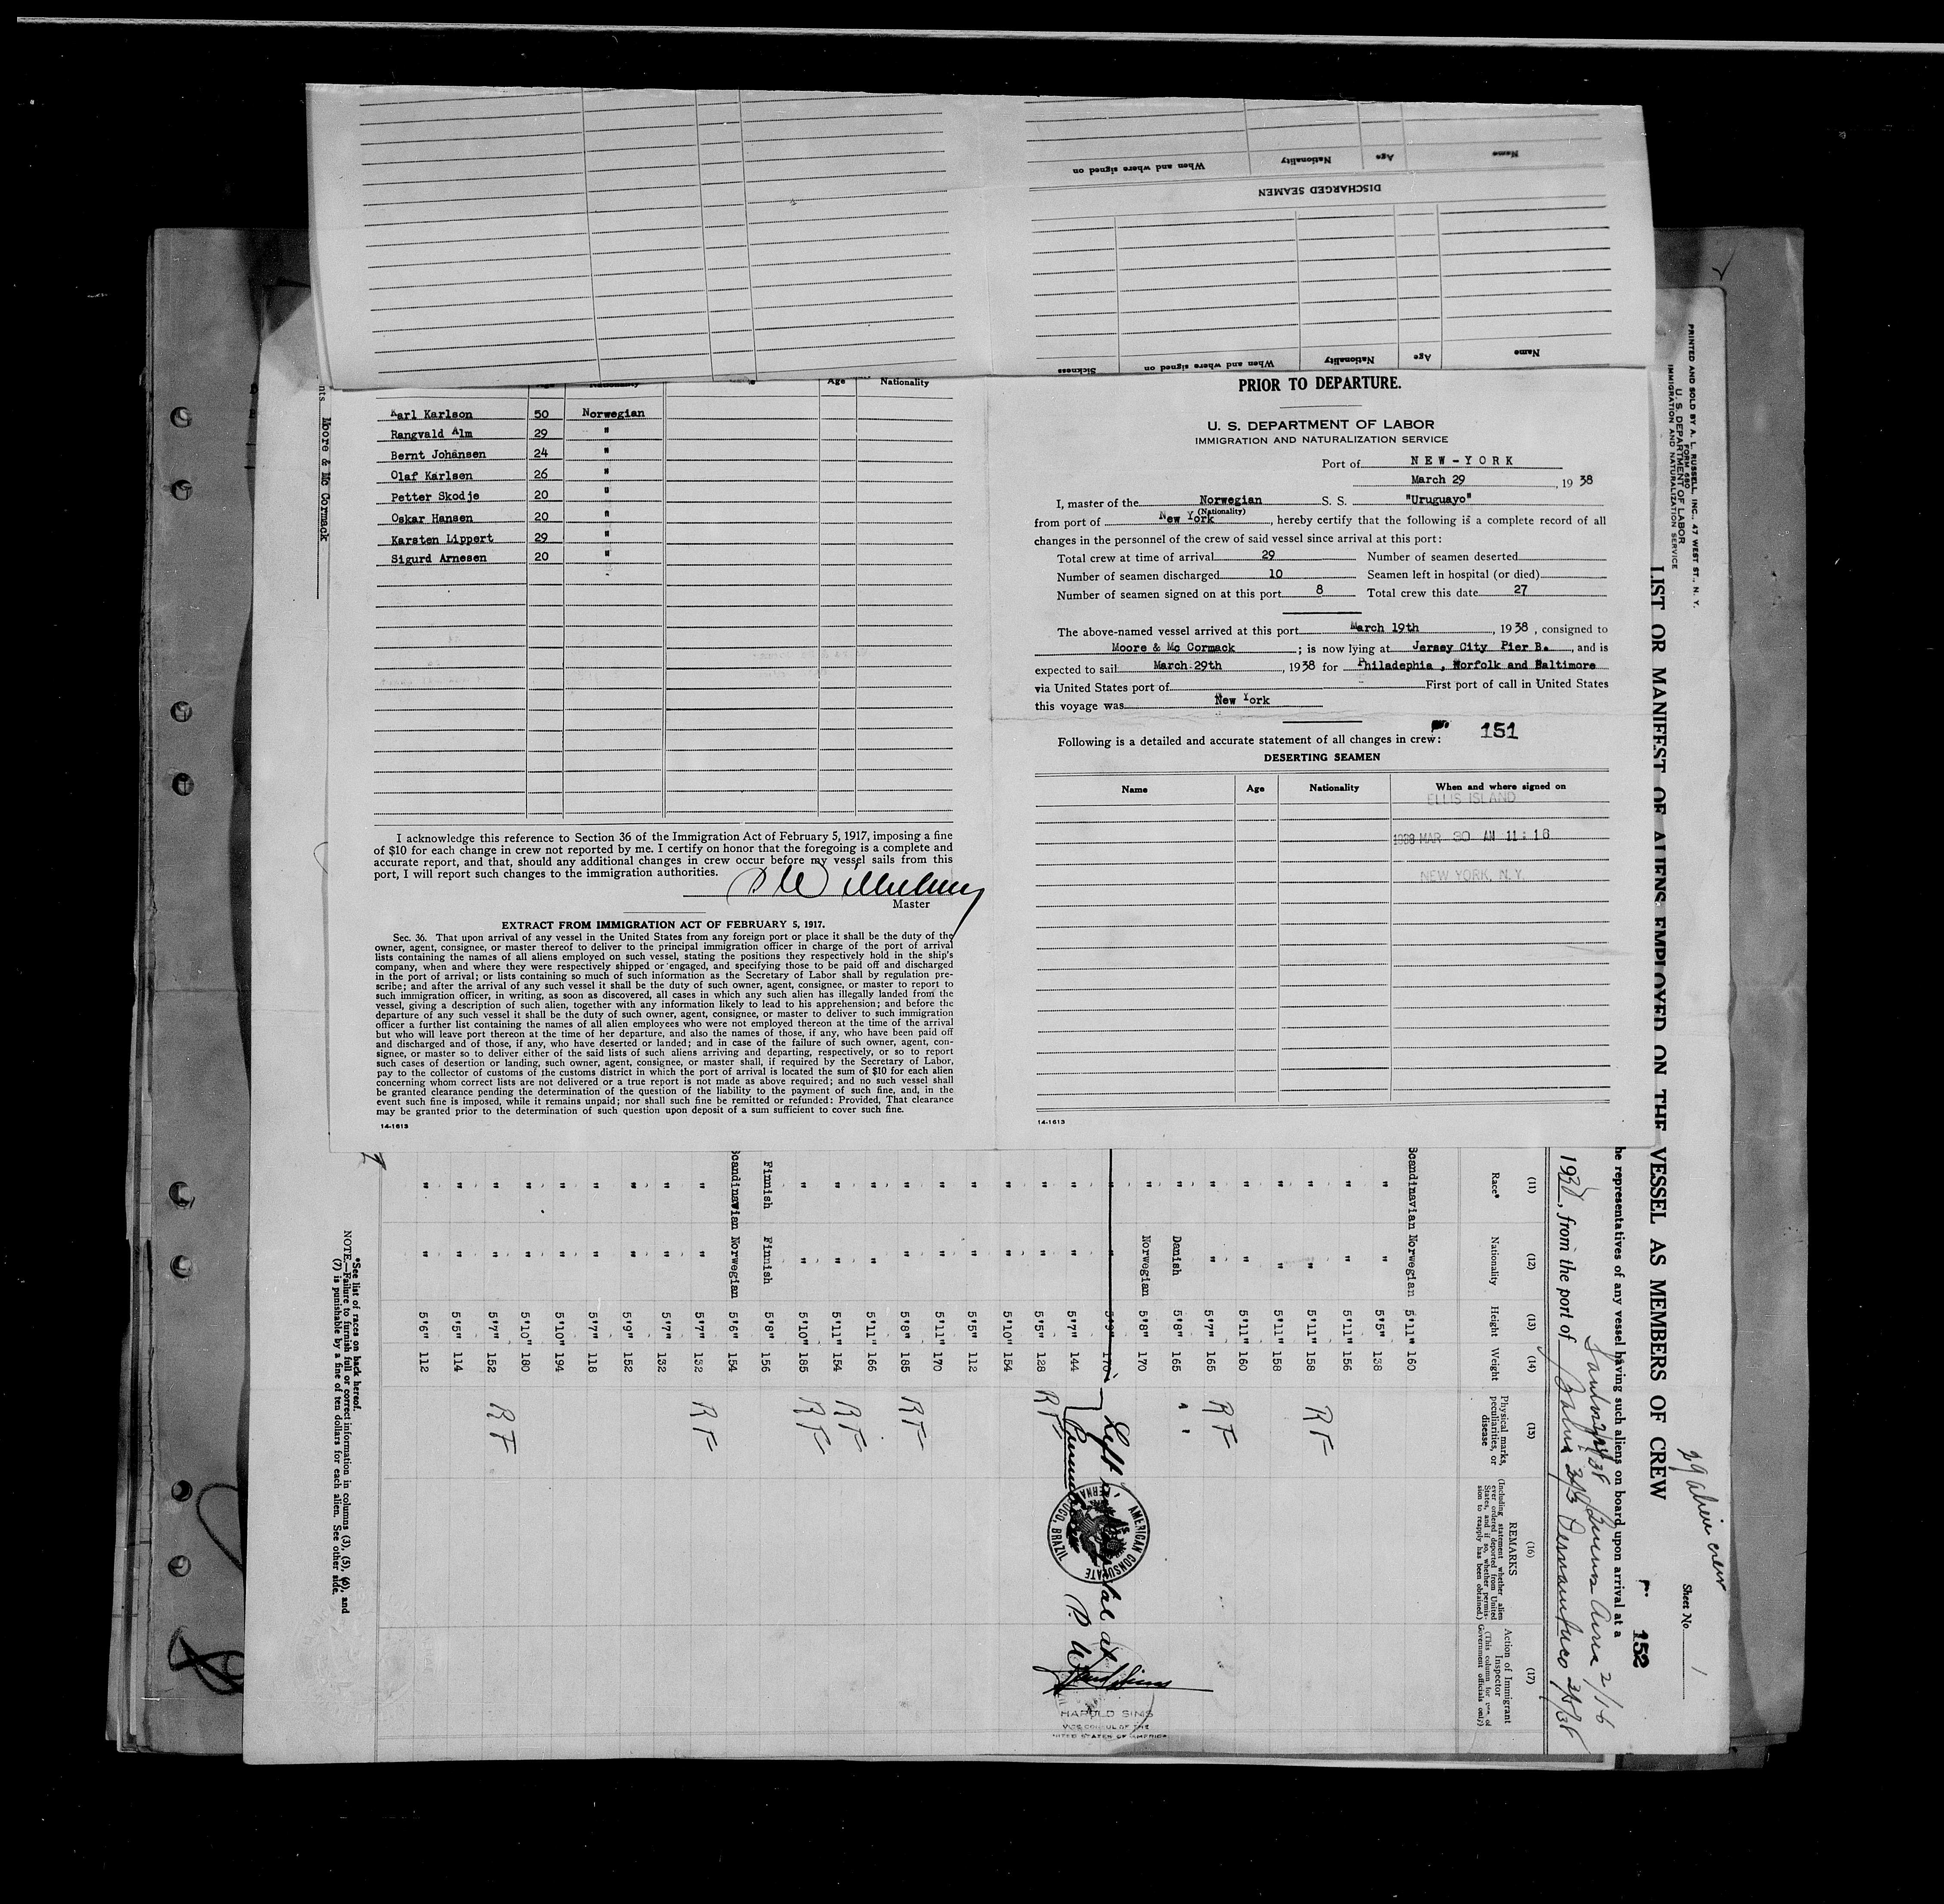 Name Age Nationality When and where signed on
DISCHARGED SEAMEN
Name Age Nationality When and where signed on Sickness
Age Nationality Age Nationality
Karl Karlson 50 Norwegian
Rangvald Alm 29 "
Bernt Johansen 24 "
Olaf Karlsen 26 "
Petter Skodje 20 "
Oskar Hansen 20 "
Karsten Lippert 29 "
Sigurd Arnesen 20 "
I acknowledge this reference to Section 36 of the Immigration Act of February 5, 1917, imposing a fine
of $10 for each change in crew not reported by me. I certify on honor that the foregoing is a complete and
accurate report, and that, should any additional changes in crew occur before my vessel sails from this
port, I will report such changes to the immigration authorities.
Master
EXTRACT FROM IMMIGRATION ACT OF FEBRUARY 5, 1917.
Sec. 36. That upon arrival of any vessel in the United States from any foreign port or place it shall be the duty of the
owner, agent, consignee, or master thereof to deliver to the principal immigration officer in charge of the port of arrival
lists containing the names of all aliens employed on such vessel, stating the positions they respectively hold in the ship's
company, when and where they were respectively shipped or engaged, and specifying those to be paid off and discharged
in the port of arrival; or lists containing so much of such information as the Secretary of Labor shall by regulation pre-
scribe; and after the arrival of any such vessel it shall be the duty of such owner, agent, consignee, or master to report to
such immigration officer, in writing, as soon as discovered, all cases in which any such alien has illegally landed from the
vessel, giving a description of such alien, together with any information likely to lead to his apprehension; and before the
departure of any such vessel it shall be the duty of such owner, agent, consignee, or master to deliver to such immigration
officer a further list containing the names of all alien employees who were not employed thereon at the time of the arrival
but who will leave port thereon at the time of her departure, and also the names of those, if any, who have been paid off
and discharged and of those, if any, who have deserted or landed; and in case of the failure of such owner, agent, con-
signee, or master so to deliver either of the said lists of such aliens arriving and departing, respectively, or so to report
such cases of desertion or landing, such owner, agent, consignee, or master shall, if required by the Secretary of Labor,
pay to the collector of customs of the customs district in which the port of arrival is located the sum of $10 for each alien
concerning whom correct lists are not delivered or a true report is not made as above required; and no such vessel shall
be granted clearance pending the determination of the question of the liability to the payment of such fine, and, in the
event such fine is imposed, while it remains unpaid; nor shall such fine be remitted or refunded: Provided, That clearance
may be granted prior to the determination of such question upon deposit of a sum sufficient to cover such fine.
14-1613
PRIOR TO DEPARTURE.
U. S. DEPARTMENT OF LABOR
IMMIGRATION AND NATURALIZATION SERVICE
Port of NEW-YORK
March 29, 1938
I, master of the Norwegian S. S. "Uruguayo"
(Nationality)
from port of New York, hereby certify that the following is a complete record of all
changes in the personnel of the crew of said vessel since arrival at this port:
Total crew at time of arrival 29 Number of seamen deserted
Number of seamen discharged 10 Seamen left in hospital (or died)
Number of seamen signed on at this port 8 Total crew this date 27
The above-named vessel arrived at this port March 19th, 1938, consigned to
Moore & Mc Cormack; is now lying at Jersey City Pier B., and is
expected to sail March 29th, 1938 for Philadephia, Norfolk and Baltimore
via United States port of First port of call in United States
this voyage was New York
151
Following is a detailed and accurate statement of all changes in crew:
DESERTING SEAMEN
Name Age Nationality When and where signed on
ELLIS ISLAND
1938 MAR 30 AM 11:16
NEW YORK, N.Y.
14-1613
nts Moore & Mc Cormack
PRINTED AND SOLD BY A. L. RUSSELL, INC., 47 WEST ST., N. Y.
FORM 680
U. S. DEPARTMENT OF LABOR
IMMIGRATION AND NATURALIZATION SERVICE
29 alien crew
Sheet No. 1
LIST OR MANIFEST OF ALIENS EMPLOYED ON THE VESSEL AS MEMBERS OF CREW
152
he representatives of any vessel having such aliens on board upon arrival at a
Buenos Aires 2/16
1938, from the port of Pernambuco
(11) (12) (13) (14) (15) (16) (17)
Race* Nationality Height Weight Physical marks, peculiarities, or disease REMARKS (Including statement whether alien ever ordered deported from United States, and if so, whether permission to reapply has been obtained.) Action of Immigrant Inspector (This column for use of Government officials only)
Scandinavian Norwegian 5'11" 160
" " 5'5" 138
" " 5'11" 156
" " 5'11" 158 RF
" " 5'11" 158
" " 5'11" 160
" " 5'7" 165 RF
" Danish 5'8" 165
" Norwegian 5'8" 170
" " 5'9" 170 Left in hospital at
" " 5'7" 144 Pernambuco
" " 5'5" 128 RF
" " 5'10" 154
" " 5'5" 112
" " 5'11" 170
" " 5'8" 185 RF
" " 5'11" 166
" " 5'11" 154 RF
" " 5'10" 185 RF
Finnish Finnish 5'8" 156
Scandinavian Norwegian 5'6" 154
" " 5'7" 132 RF
" " 5'7" 132
" " 5'9" 152
" " 5'7" 118
" " 5'10" 194
" " 5'10" 180
" " 5'7" 152 RF
" " 5'5" 114
" " 5'6" 112
AMERICAN CONSULATE
CO, BRAZIL
HAROLD SIMS
VICE CONSUL OF THE
UNITED STATES OF AMERICA
*See list of races on back hereof.
NOTE.—Failure to furnish full or correct information in columns (3), (5), (6), and
(7) is punishable by a fine of ten dollars for each alien. See other side.